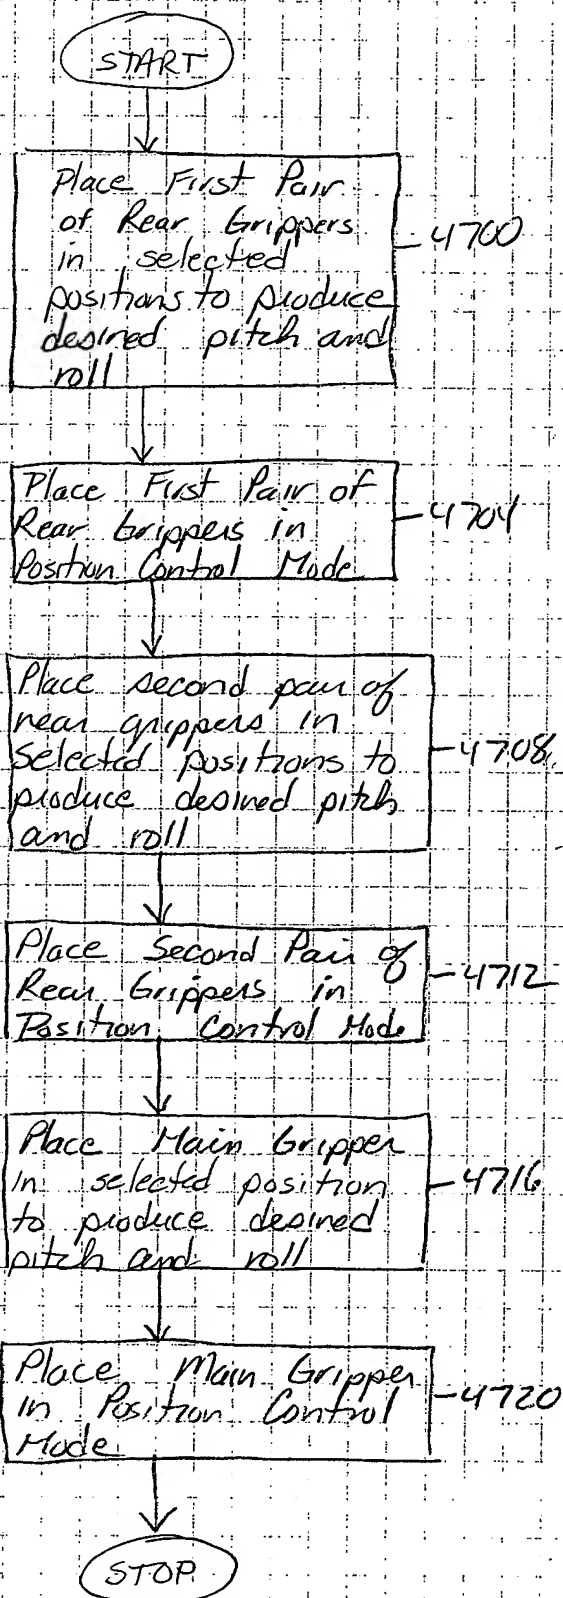 START
Place First Pair
of Rear Grippers
in selected
positions to produce
desired pitch and
roll
4700
Place First Pair of
Rear Grippers in
Position Control Mode
4704
Place second pair of
rear grippers in
selected positions to
produce desired pitch
and roll
4708
Place Second Pair of
Rear Grippers in
Position Control Mode
4712
Place Main Gripper
in selected position
to produce desired
pitch and roll
4716
Place Main Gripper
in Position Control
Mode
4720
STOP